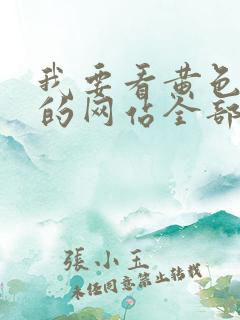 我要看黄色
的网站全部
張小玉
未经同意禁止转载